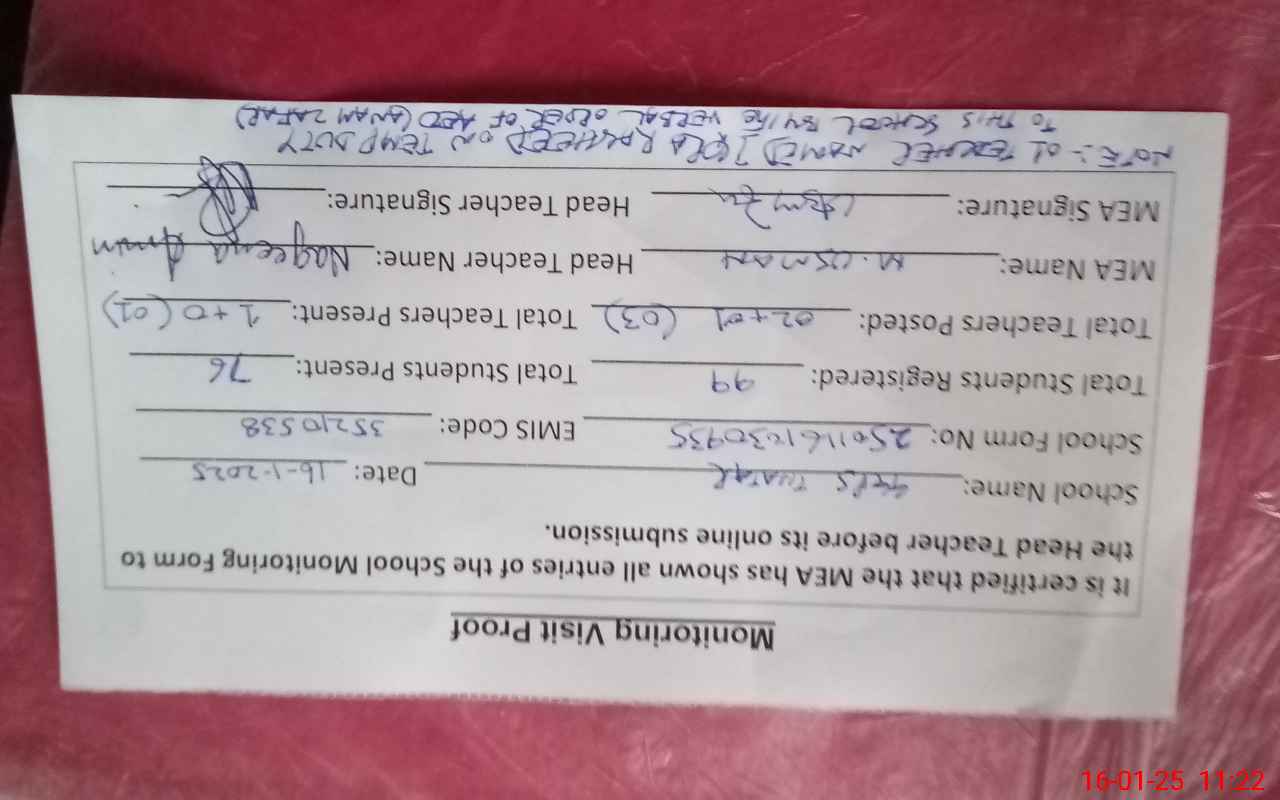 Monitoring Visit Proof
It is certified that the MEA has shown all entries of the School Monitoring Form to
the Head Teacher before its online submission.
School Name: GGPS THATAR Date: 16-1-2025
School Form No: EMIS Code: 35210538
Total Students Registered: 99 Total Students Present: 76
Total Teachers Posted: 02+01 (03) Total Teachers Present: 1+0 (01)
MEA Name: M. USMAN Head Teacher Name: Nageena Amin
MEA Signature: Head Teacher Signature:
NOTE:- 01 TEACHER NAMED IQRA RASHEED ON TEMP DUTY
TO THIS SCHOOL BY THE VERBAL ORDER OF AEO (ANAM ZAFAR)
16-01-25 11:22